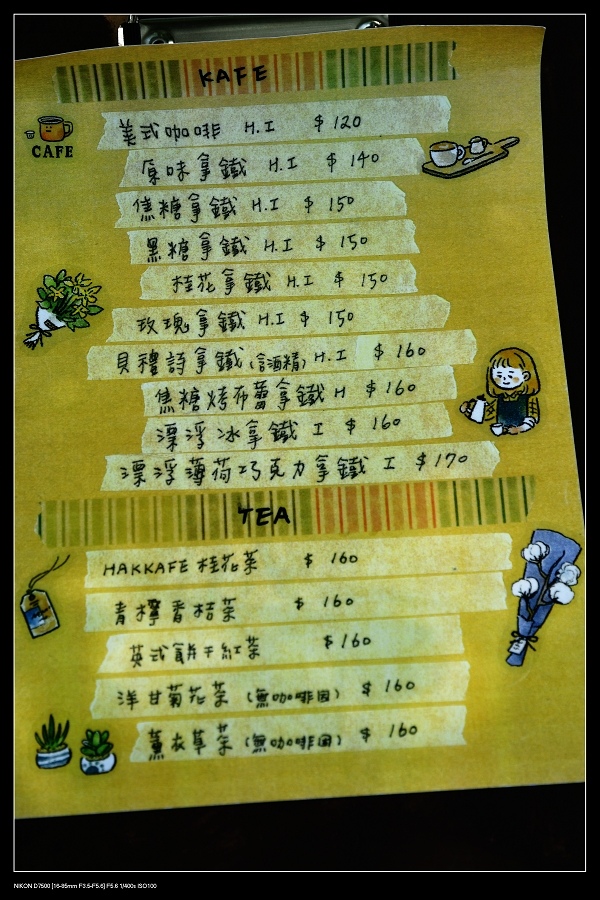 KAFE
美式咖啡 H.I $120
CAFE
原味拿鐵 H.I $140
焦糖拿鐵 H.I $150
黑糖拿鐵 H.I $150
桂花拿鐵 H.I $150
玫瑰拿鐵 H.I $150
貝禮詩拿鐵(含酒精)H.I $160
焦糖烤布蕾拿鐵 H $160
漂浮冰拿鐵 I $160
漂浮薄荷巧克力拿鐵 I $170
TEA
HAKKAFE 桂花茶 $160
青檸香桔茶 $160
英式餅干紅茶 $160
洋甘菊花茶 (無咖啡因) $160
薰衣草茶 (無咖啡因) $160
NIKON D7500 [16-85mm F3.5-F5.6] F5.6 1/400s ISO100